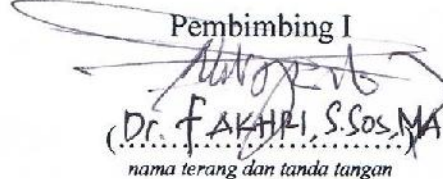 Pembimbing I
(Dr. FAKHRI, S.Sos, MA)
nama terang dan tanda tangan